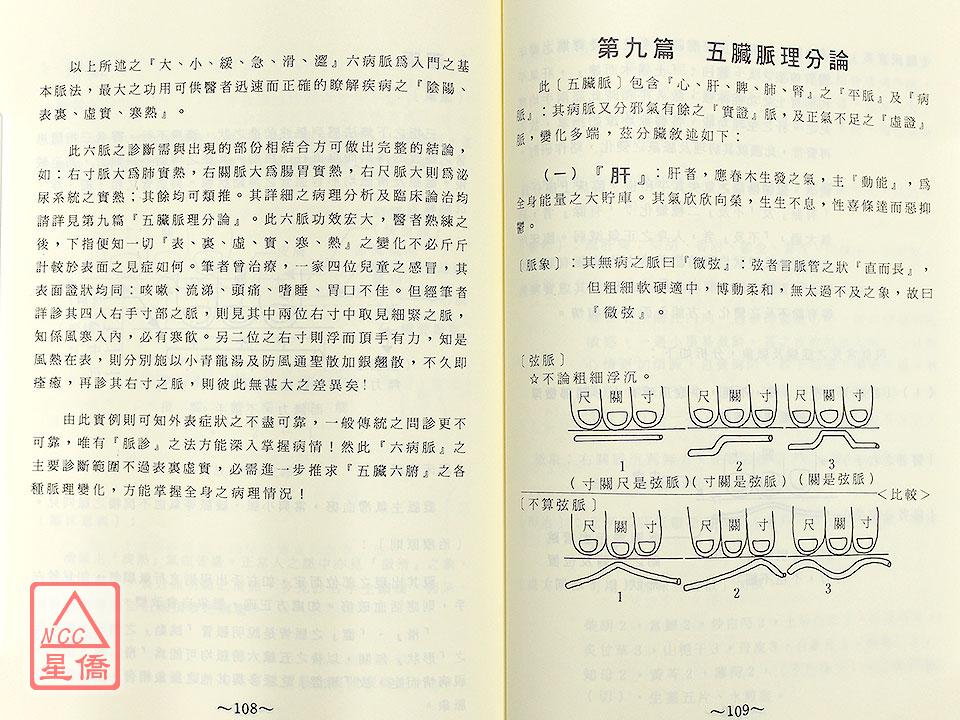 以上所述之『大、小、緩、急、滑、澀』六病脈為入門之基
本脈法，最大之功用可供醫者迅速而正確的瞭解疾病之『陰陽、
表裏、虛實、寒熱』。
此六脈之診斷需與出現的部份相結合方可做出完整的結論，
如：右寸脈大爲肺實熱，右關脈大爲腸胃實熱，右尺脈大則爲泌
尿系統之實熱；其餘均可類推。其詳細之病理分析及臨床論治均
請詳見第九篇『五臟脈理分論』。此六脈功效宏大，醫者熟練之
後，下指便知一切『表、裏、虛、實、寒、熱』之變化不必斤斤
計較於表面之見症如何。筆者曾治療，一家四位兒童之感冒，其
表面證狀均同：咳嗽、流涕、頭痛、嗜睡、胃口不佳。但經筆者
詳診其四人右手寸部之脈，則見其中兩位右寸中取見細緊之脈，
知係風寒入內，必有寒飲。另二位之右寸則浮而頂手有力，知是
風熱在表，則分別施以小青龍湯及防風通聖散加銀翹散，不久即
痊癒，再診其右寸之脈，則彼此無甚大之差異矣！
由此實例則可知外表症狀之不盡可靠，一般傳統之問診更不
可靠，唯有『脈診』之法方能深入掌握病情！然此『六病脈』之
主要診斷範圍不過表裏虛實，必需進一步推求『五臟六腑』之各
種脈理變化，方能掌握全身之病理情況！
NCC
星僑
～108～
第九篇　五臟脈理分論
此〔五臟脈〕包含『心、肝、脾、肺、腎』之『平脈』及『病
脈』：其病脈又分邪氣有餘之『實證』脈，及正氣不足之『虛證』
脈，變化多端，茲分臟敘述如下：
（一）『肝』：肝者，應春木生發之氣，主『動能』，爲
全身能量之大貯庫。其氣欣欣向榮，生生不息，性喜條達而惡抑
鬱。
〔脈象〕：其無病之脈曰『微弦』：弦者言脈管之狀『直而長』，
但粗細軟硬適中，博動柔和，無太過不及之象，故曰
『微弦』。
〔弦脈〕
☆不論粗細浮沉。
尺 關 寸　尺 關 寸　尺 關 寸
1　2　3
（寸關尺是弦脈）（寸關是弦脈）（關是弦脈）
＜比較＞
〔不算弦脈〕
尺 關 寸　尺 關 寸　尺 關 寸
1　2　3
～109～